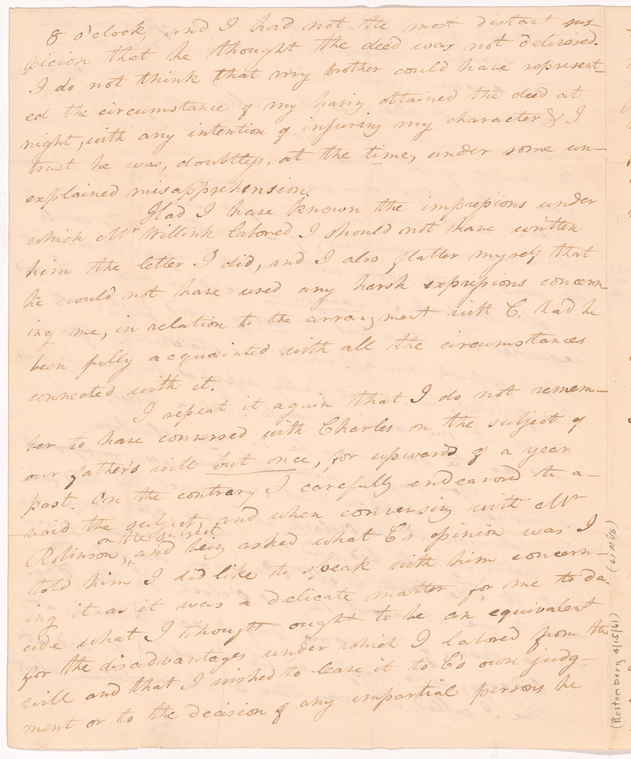 8 o'clock, and I had not the most distant sus
picion that he thought the deed was not delivered.
I do not think that my brother could have represent-
ed the circumstance of my having obtained the deed at
night, with any intention of injuring my character & I
trust he was, doubtless, at the time, under some un-
explained misapprehension.
Had I have known the impressions under
which Mr Willink labored I should not have written
him the letter I did, and I also flatter myself that
he would not have used any harsh expressions concern
ing me, in relation to the arrangment with C. had he
been fully acquainted with all the circumstances
connected with it.
I repeat it again that I do not remem-
ber to have conversed with Charles on the subject of
our father's will but once, for upwards of a year
past. On the contrary I carefully endeavored to a-
void the subject and when conversing with Mr
on the subject
Robinson, and being asked what C's opinion was I
told him I did like to speak with him concern-
ing it as it was a delicate matter for me to de
cide what I thought ought to be an equivalent
for the disadvantages under which I labored from the
will and that I wished to leave it to C's own judg-
ment or to the decision of any impartial persons he
(Rostenberg 4/15/61)